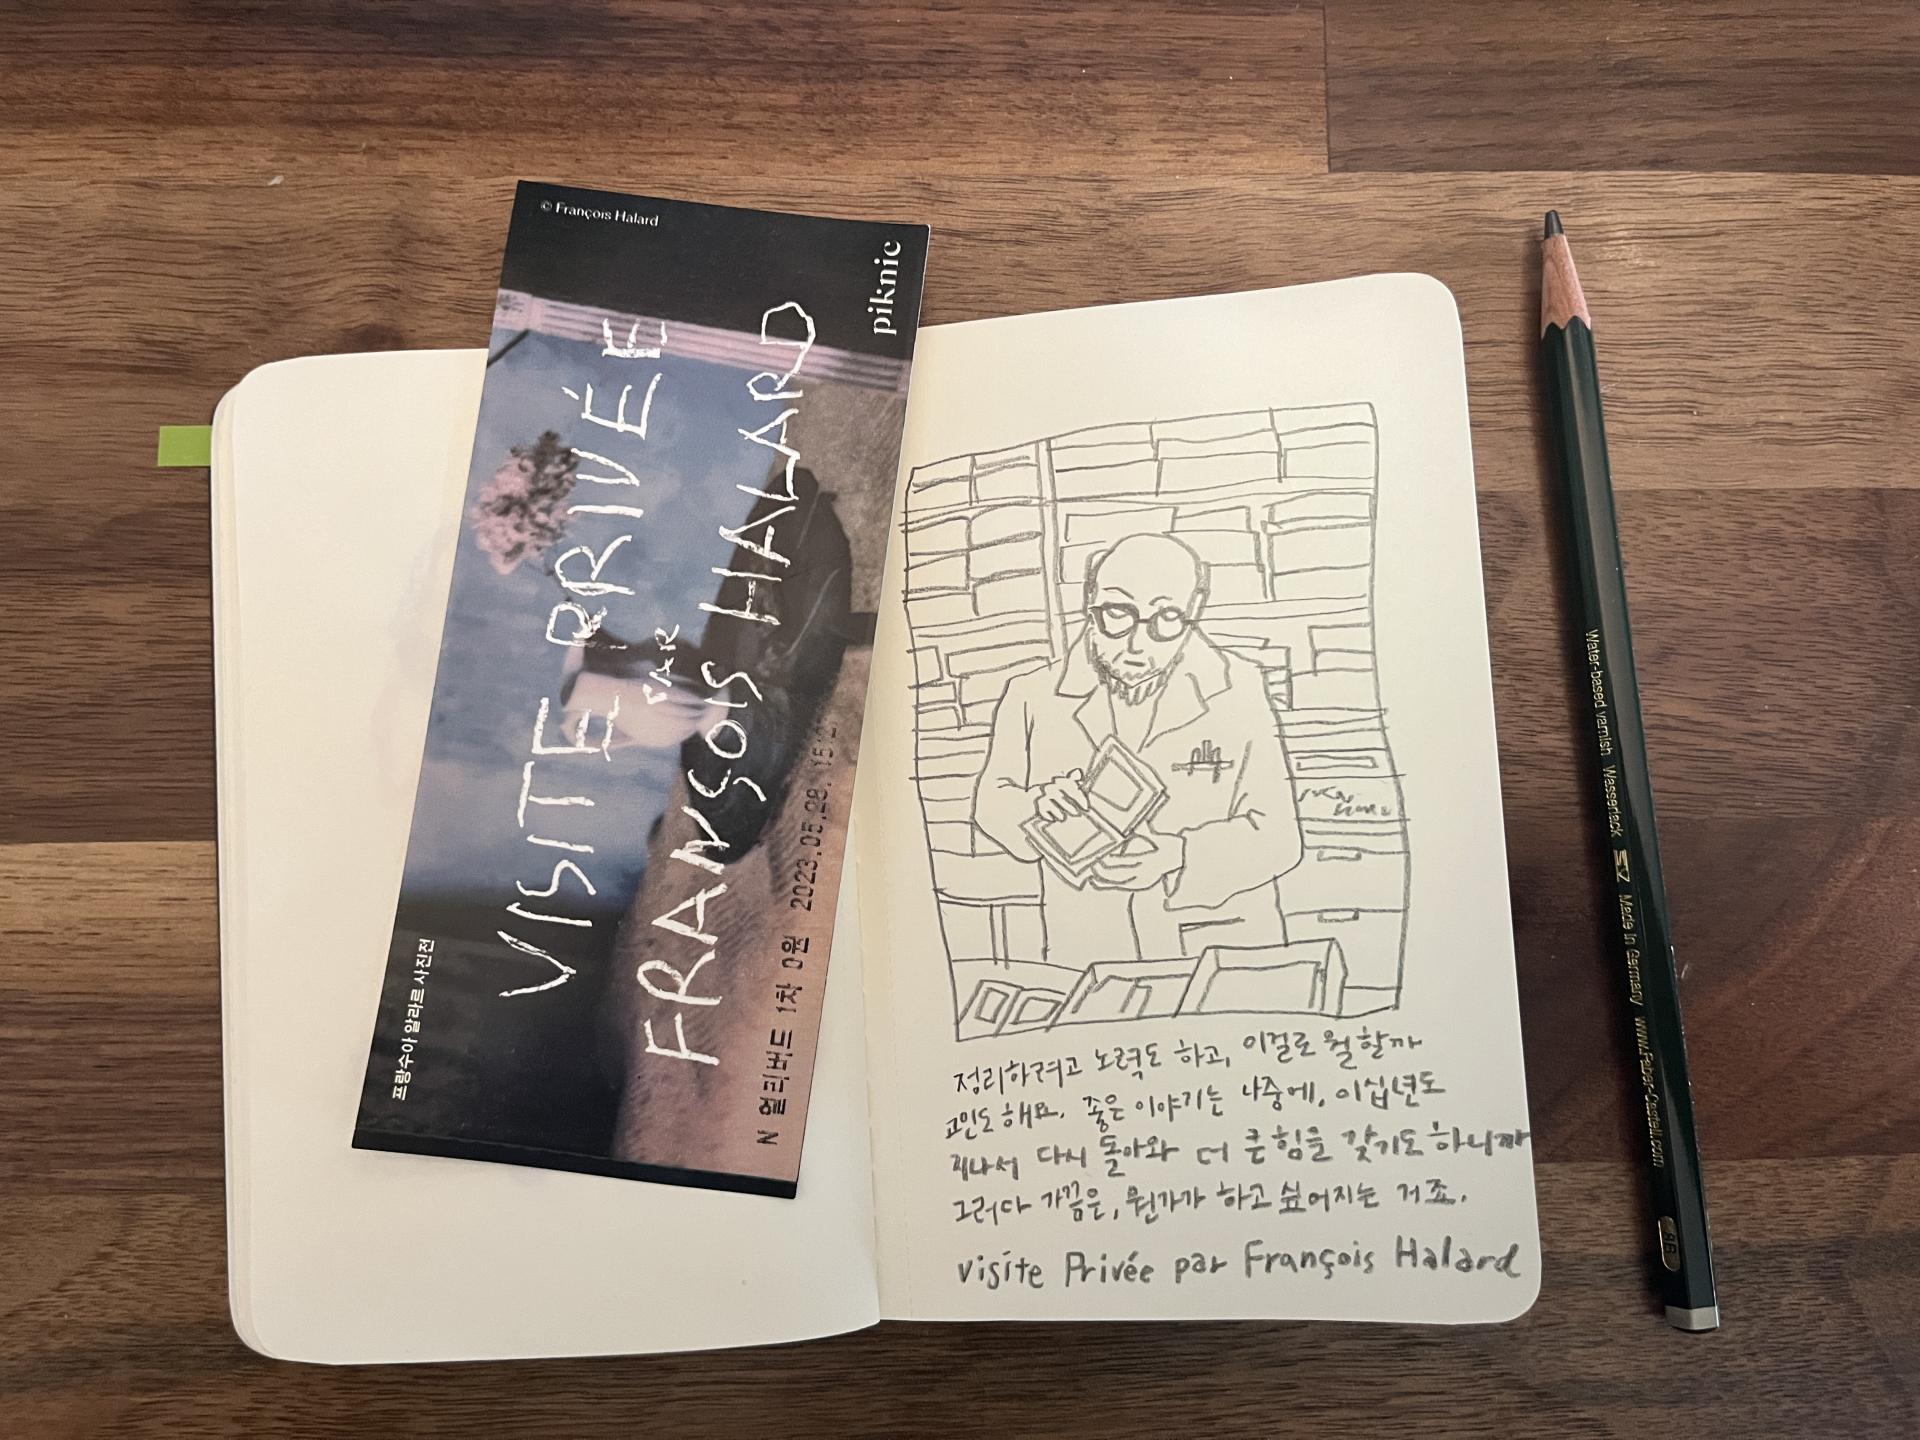 © François Halard
piknic
VISITE PRIVÉE
PAR
FRANÇOIS HALARD
프랑수아 알라르 사진전
N 얼리버드 1차 0원 2023.05.28. 15:2
정리하려고 노력도 하고, 이걸로 뭘 할까
고민도 해요. 좋은 이야기는 나중에, 이십년도
지나서 다시 돌아와 더 큰 힘을 갖기도 하니까
그러다 가끔은, 뭔가가 하고 싶어지는 거죠.
Visite Privée par François Halard
Water-based varnish Wasserlack Made in Germany www.Faber-Castell.com
8B